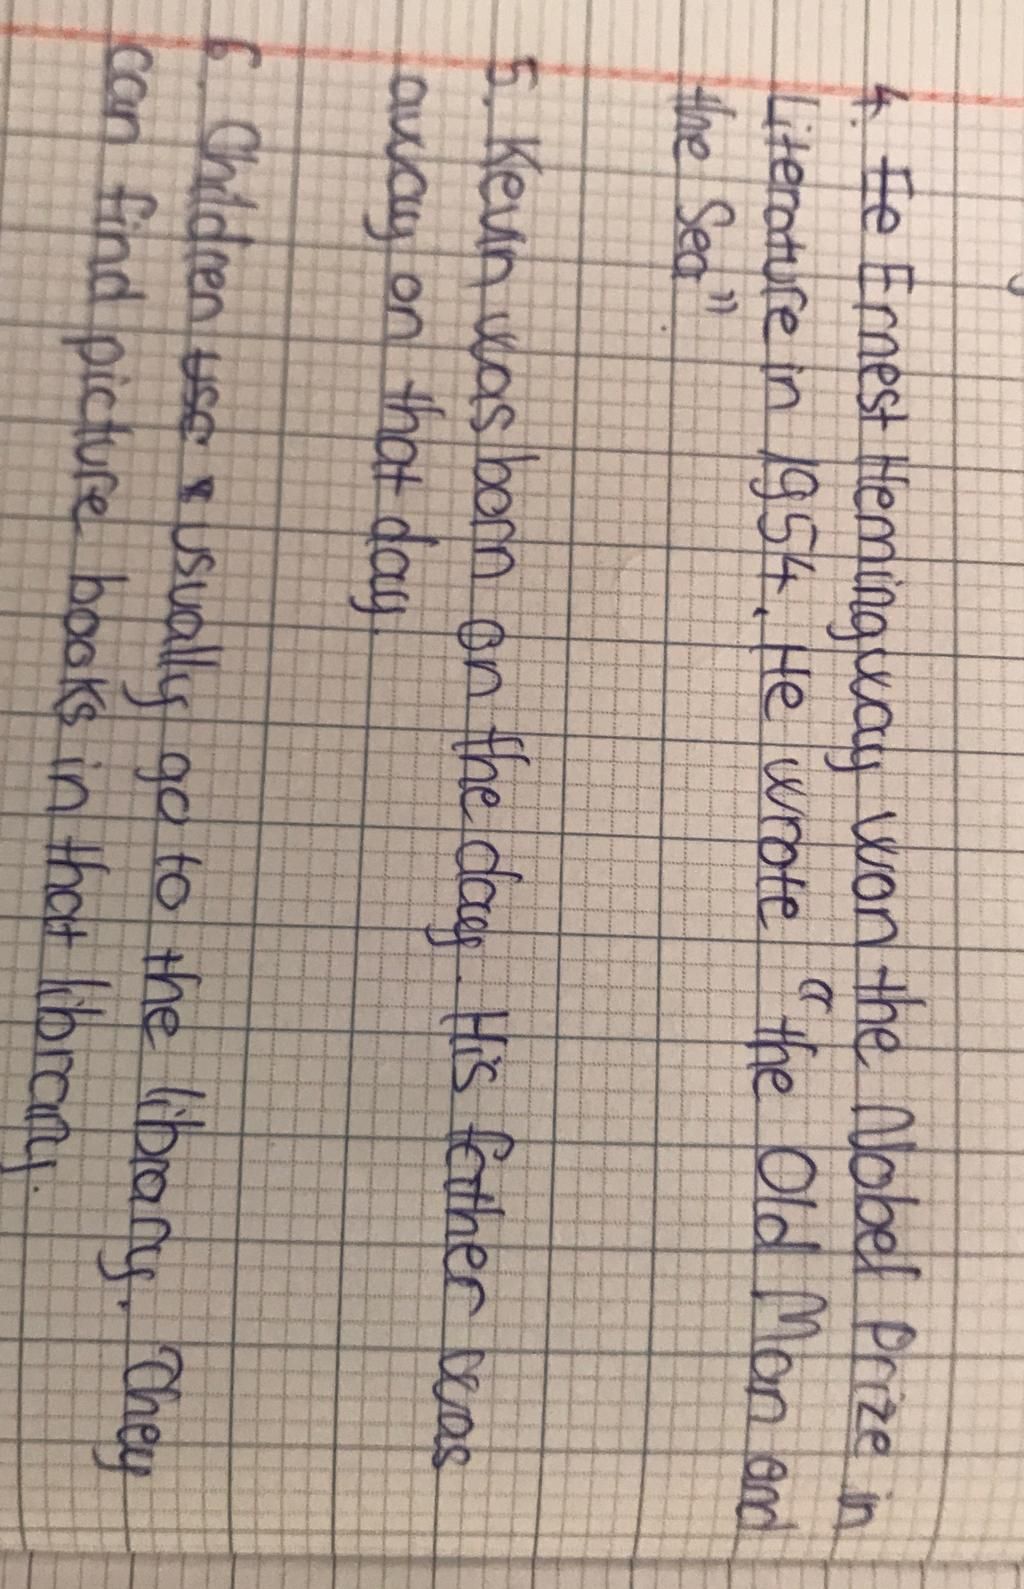 4. Ernest Hemingway won the Nobel Prize in
Literature in 1954. He wrote "the Old Man and
the Sea".
5. Kevin was born on the day. His father was
away on that day.
6. Children usually go to the library. They
can find picture books in that library.